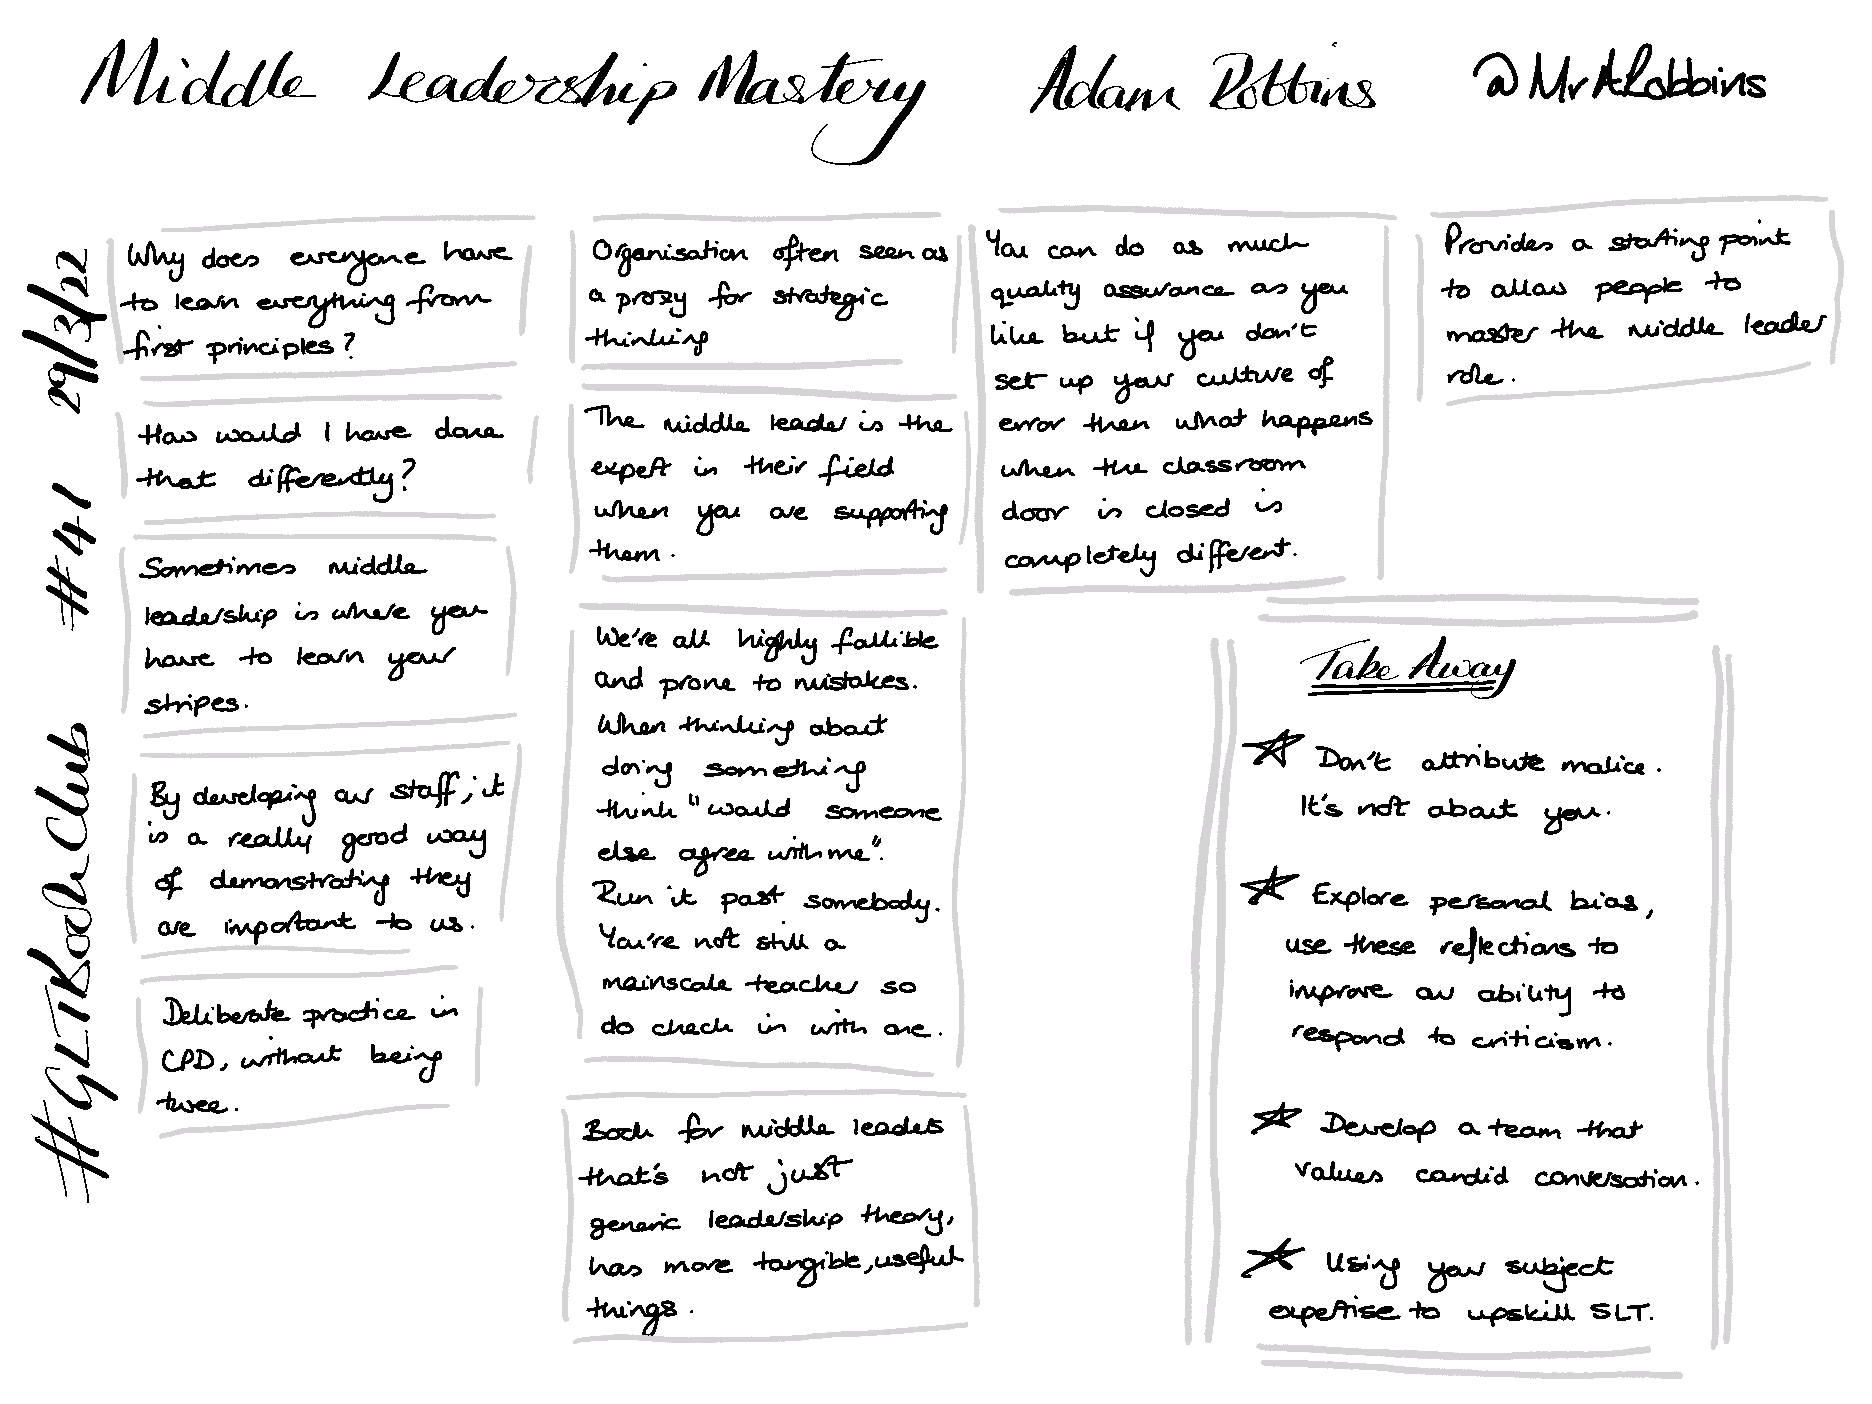 Middle Leadership Mastery Adam Robbins @MrARobbins
#GLTBookClub #41 29/3/22
Why does everyone have
to learn everything from
first principles?
How would I have done
that differently?
Sometimes middle
leadership is where you
have to learn your
stripes.
By developing our staff, it
is a really good way
of demonstrating they
are important to us.
Deliberate practice in
CPD, without being
twee.
Organisation often seen as
a proxy for strategic
thinking
The middle leader is the
expert in their field
when you are supporting
them.
We're all highly fallible
and prone to mistakes.
When thinking about
doing something
think "would someone
else agree with me".
Run it past somebody.
You're not still a
mainscale teacher so
do check in with one.
Book for middle leaders
that's not just
generic leadership theory,
has more tangible, useful
things.
You can do as much
quality assurance as you
like but if you don't
set up your culture of
error then what happens
when the classroom
door is closed is
completely different.
Provides a starting point
to allow people to
master the middle leader
role.
Take Away
Don't attribute malice.
It's not about you.
Explore personal bias,
use these reflections to
improve our ability to
respond to criticism.
Develop a team that
values candid conversation.
Using your subject
expertise to upskill SLT.